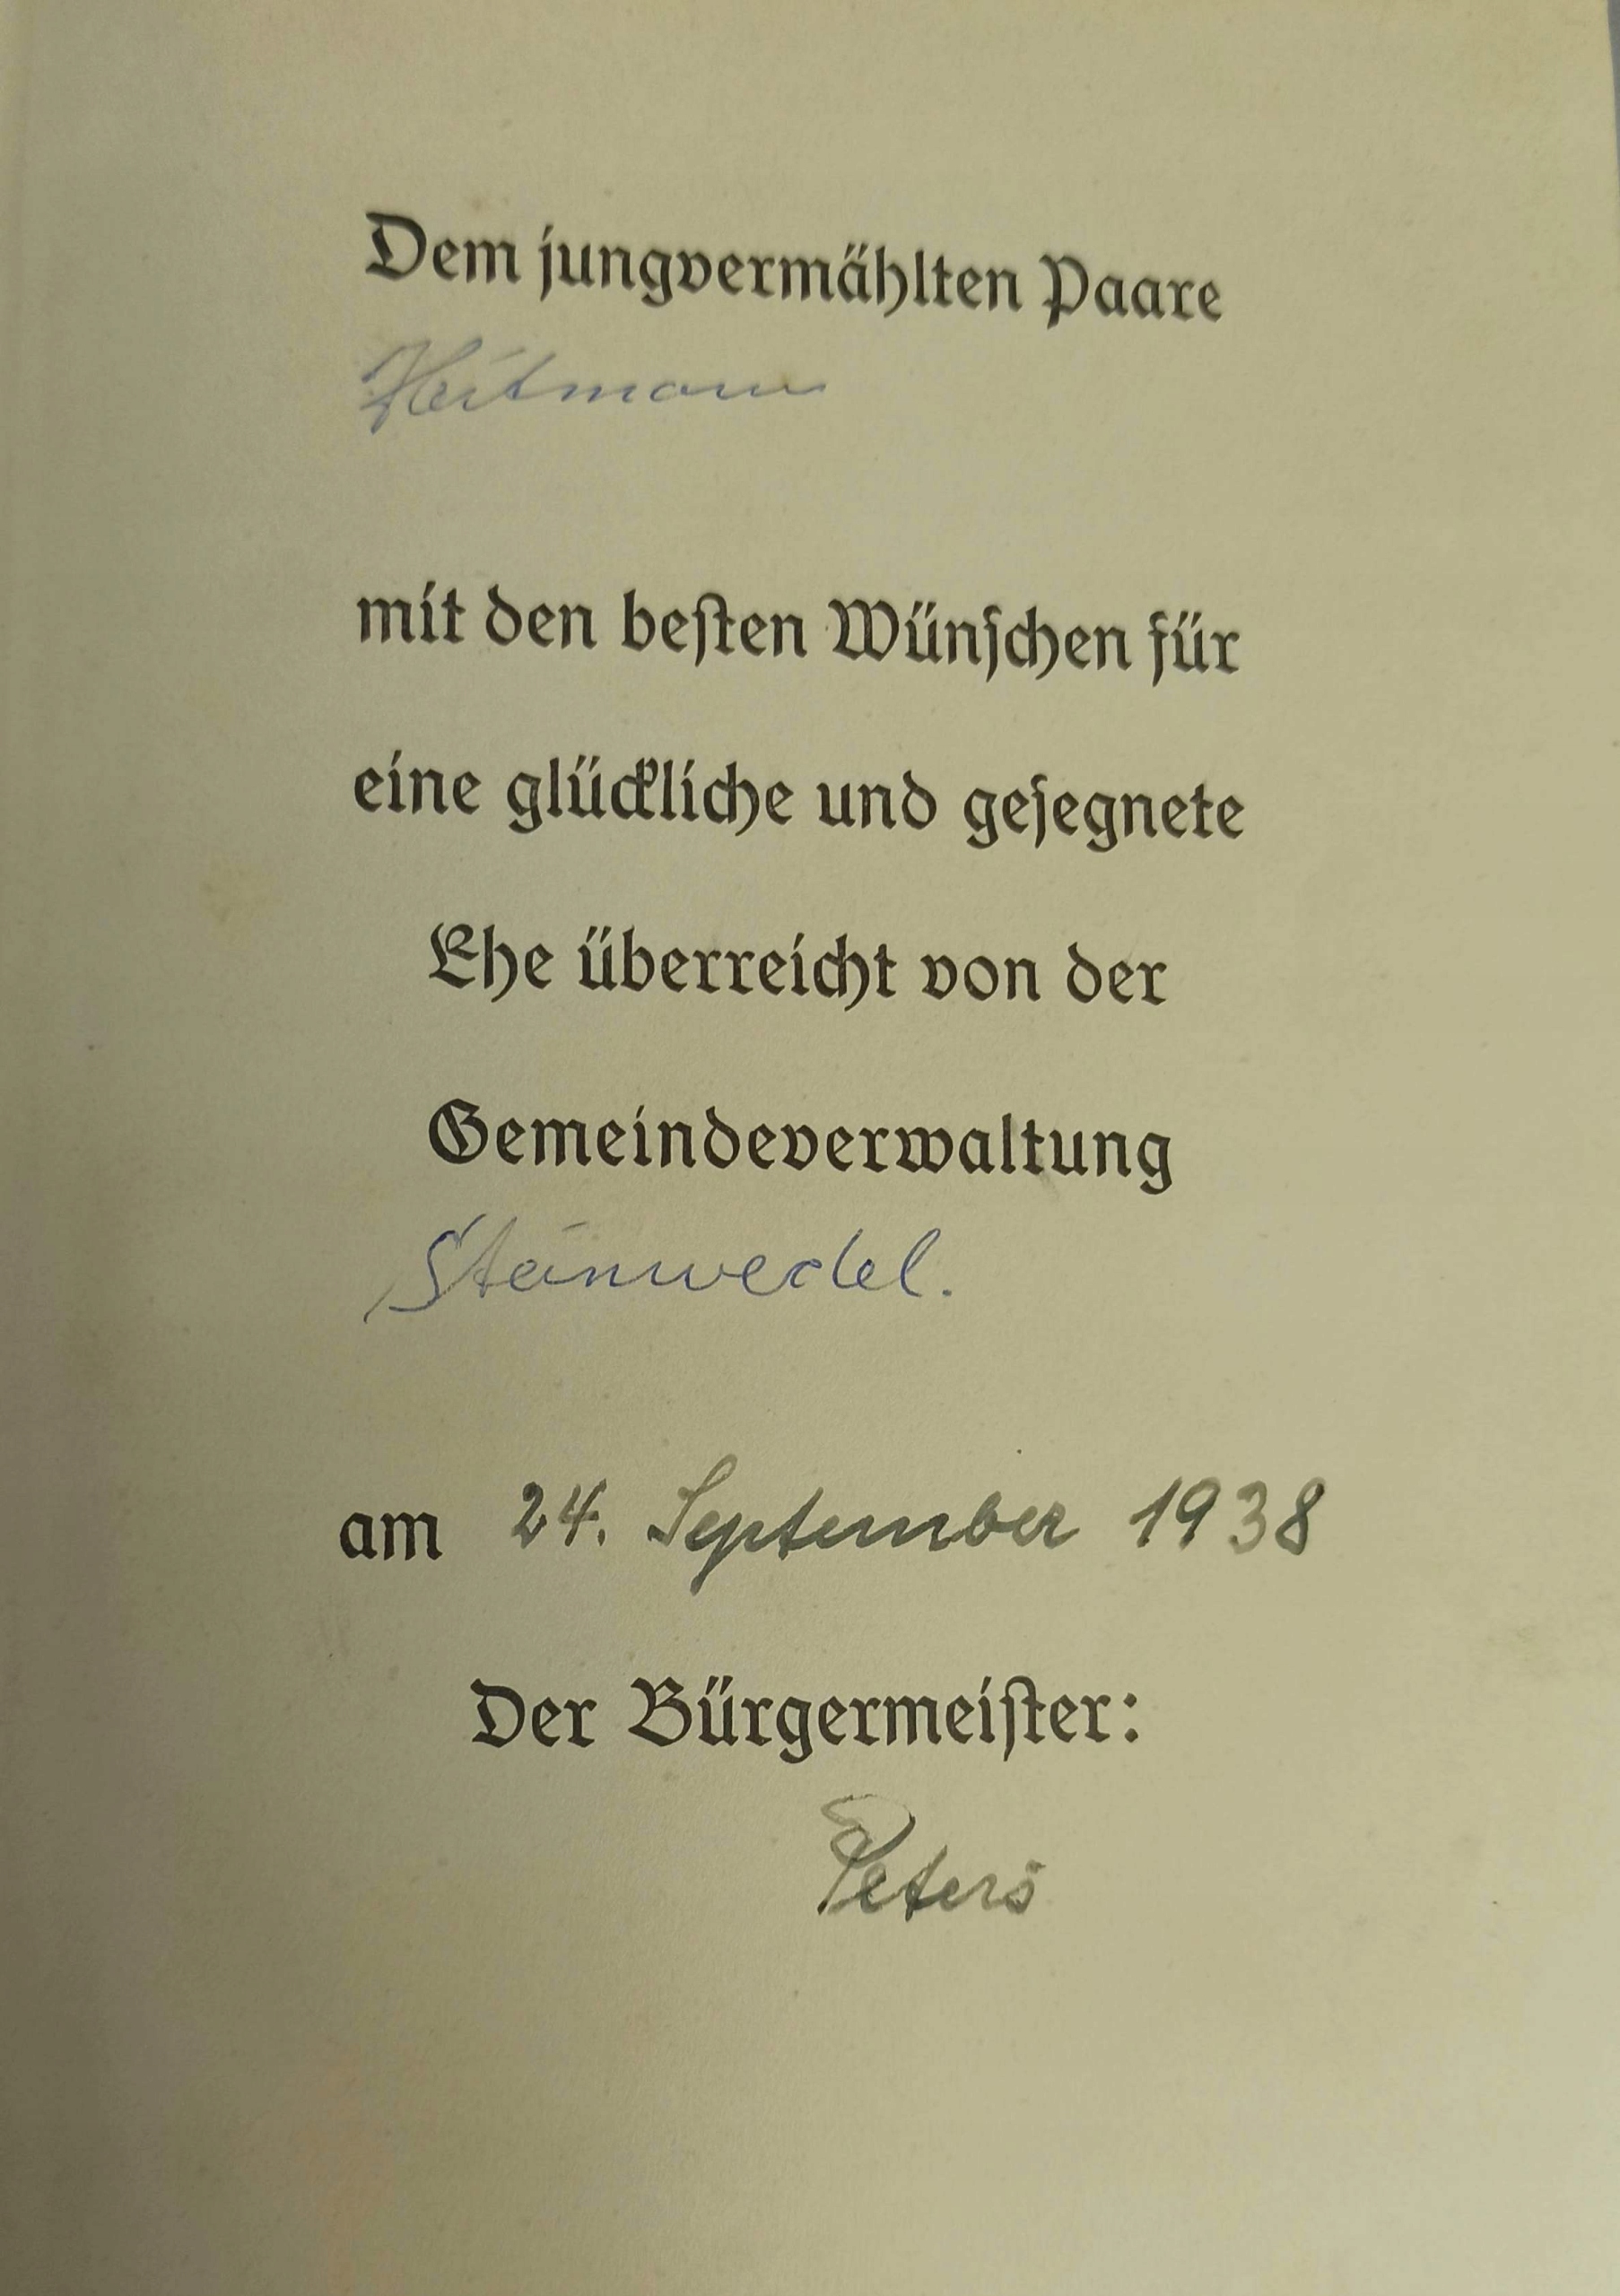 Dem jungvermählten Paare
Heitmann
mit den besten Wünschen für
eine glückliche und gesegnete
Ehe überreicht von der
Gemeindeverwaltung
Steinwedel.
am 24. September 1938
Der Bürgermeister:
Peters